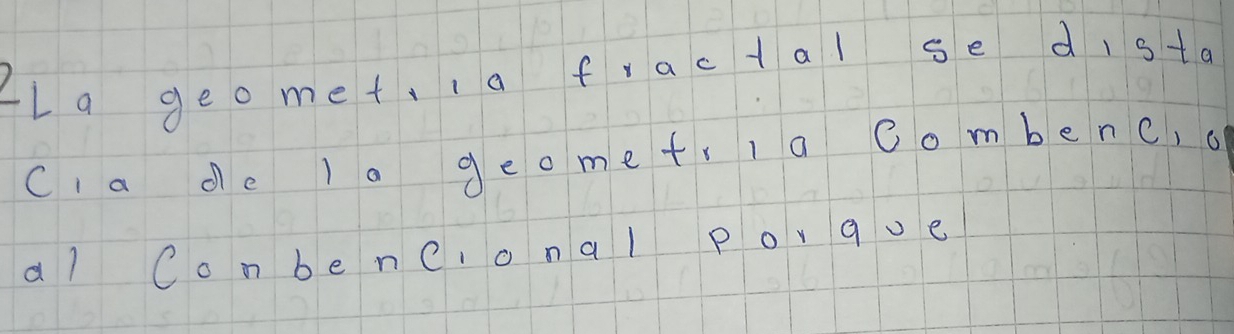 2-La geometria fractal se dista
cia de la geometria Combencio
al Conbencional porque